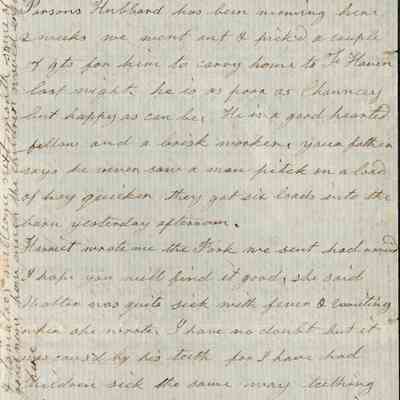 Parsons Hubbard has been mowing here
2 weeks we went out & picked a couple
of qts for him to carry home to F. Haven
last night. he is as poor as Chauncey
but happy as can be. He is a good hearted
fellow and a brisk worker, your father
says he never saw a man pitch on a load
of hay quicker they got six loads into the
barn yesterday afternoon.
Harriet wrote me the Pork we sent had
I hope you will find it good, she said
was quite sick with fever & vomiting
when she wrote. I have no doubt but it
was caus'd by his teeth for I have had
children sick the same way teething